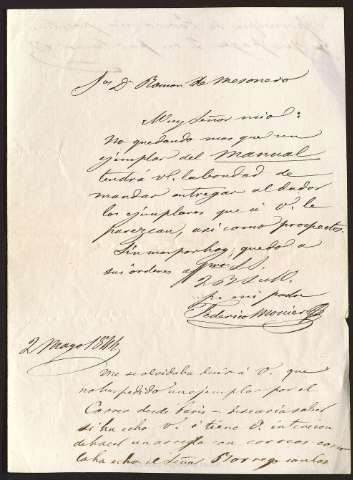 Sor D. Ramon de Mesonero
Muy Señor mio:
No quedando mas que un
ejemplar del Manual
tendrá vd. la bondad de
mandar entregar al dador
los ejemplares que á V. le
parezcan, asi como prospectos.
Sin mas por hoy, quedo a
sus órdenes afmo S.S.
Q B S M
p. mi poder
Federico Monier
2 Mayo 1844
Me se olvidaba decir á V. que
nos han pedido un ejemplar por el
Correo desde Paris – desearia saber
si ha echo V. ó tiene V. intencion
de hacer un arreglo con correos como
lo ha echo el Señor